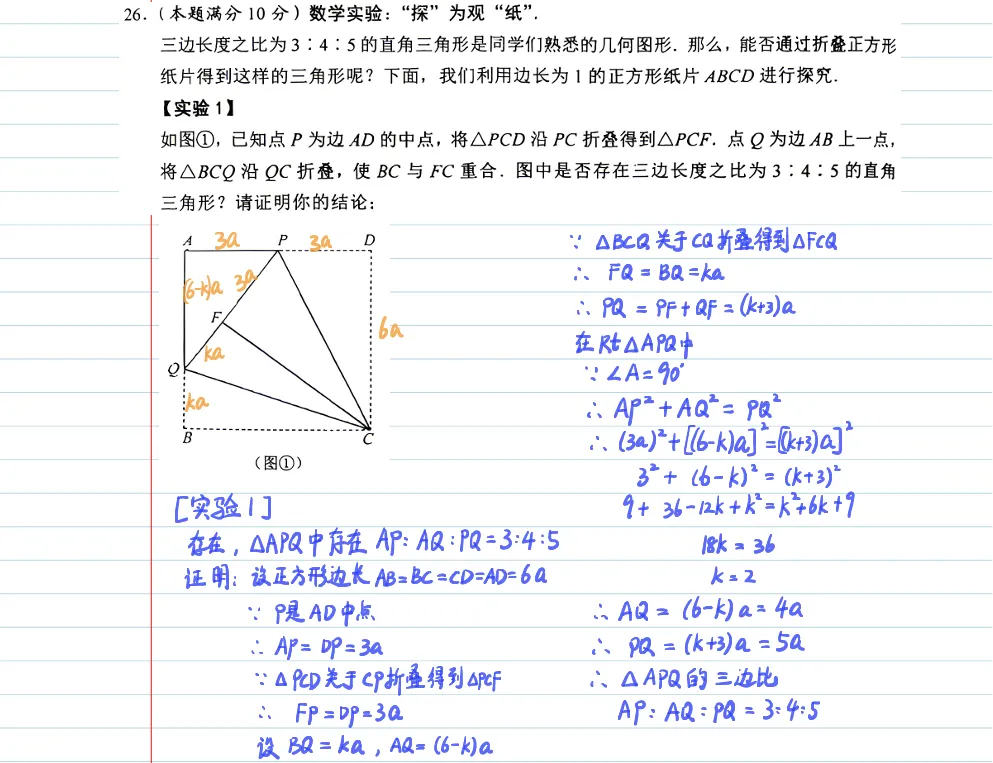 26.（本题满分 10 分）数学实验：“探”为观“纸”.
三边长度之比为 3∶4∶5 的直角三角形是同学们熟悉的几何图形. 那么，能否通过折叠正方形
纸片得到这样的三角形呢？下面，我们利用边长为 1 的正方形纸片 ABCD 进行探究.
【实验 1】
如图①，已知点 P 为边 AD 的中点，将△PCD 沿 PC 折叠得到△PCF. 点 Q 为边 AB 上一点，
将△BCQ 沿 QC 折叠，使 BC 与 FC 重合. 图中是否存在三边长度之比为 3∶4∶5 的直角
三角形？请证明你的结论：
A 3a P 3a D
(6-k)a 3a
F
6a
ka
Q
ka
B C
（图①）
[实验1]
存在，△APQ中存在 AP:AQ:PQ=3:4:5
证明：设正方形边长 AB=BC=CD=AD=6a
∵ P是AD中点
∴ AP=DP=3a
∵ △PCD关于CP折叠得到△PCF
∴ FP=DP=3a
设 BQ=ka，AQ=(6-k)a
∵ △BCQ关于CQ折叠得到△FCQ
∴ FQ=BQ=ka
∴ PQ=PF+QF=(k+3)a
在Rt△APQ中
∵ ∠A=90°
∴ AP²+AQ²=PQ²
∴ (3a)²+[(6-k)a]²=[(k+3)a]²
3²+(6-k)²=(k+3)²
9+36-12k+k²=k²+6k+9
18k=36
k=2
∴ AQ=(6-k)a=4a
∴ PQ=(k+3)a=5a
∴ △APQ的三边比
AP:AQ:PQ=3:4:5